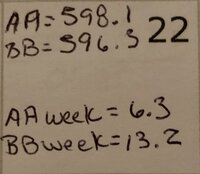 AA=598.1
BB=596.5 22
AA week=6.3
BB week=13.2